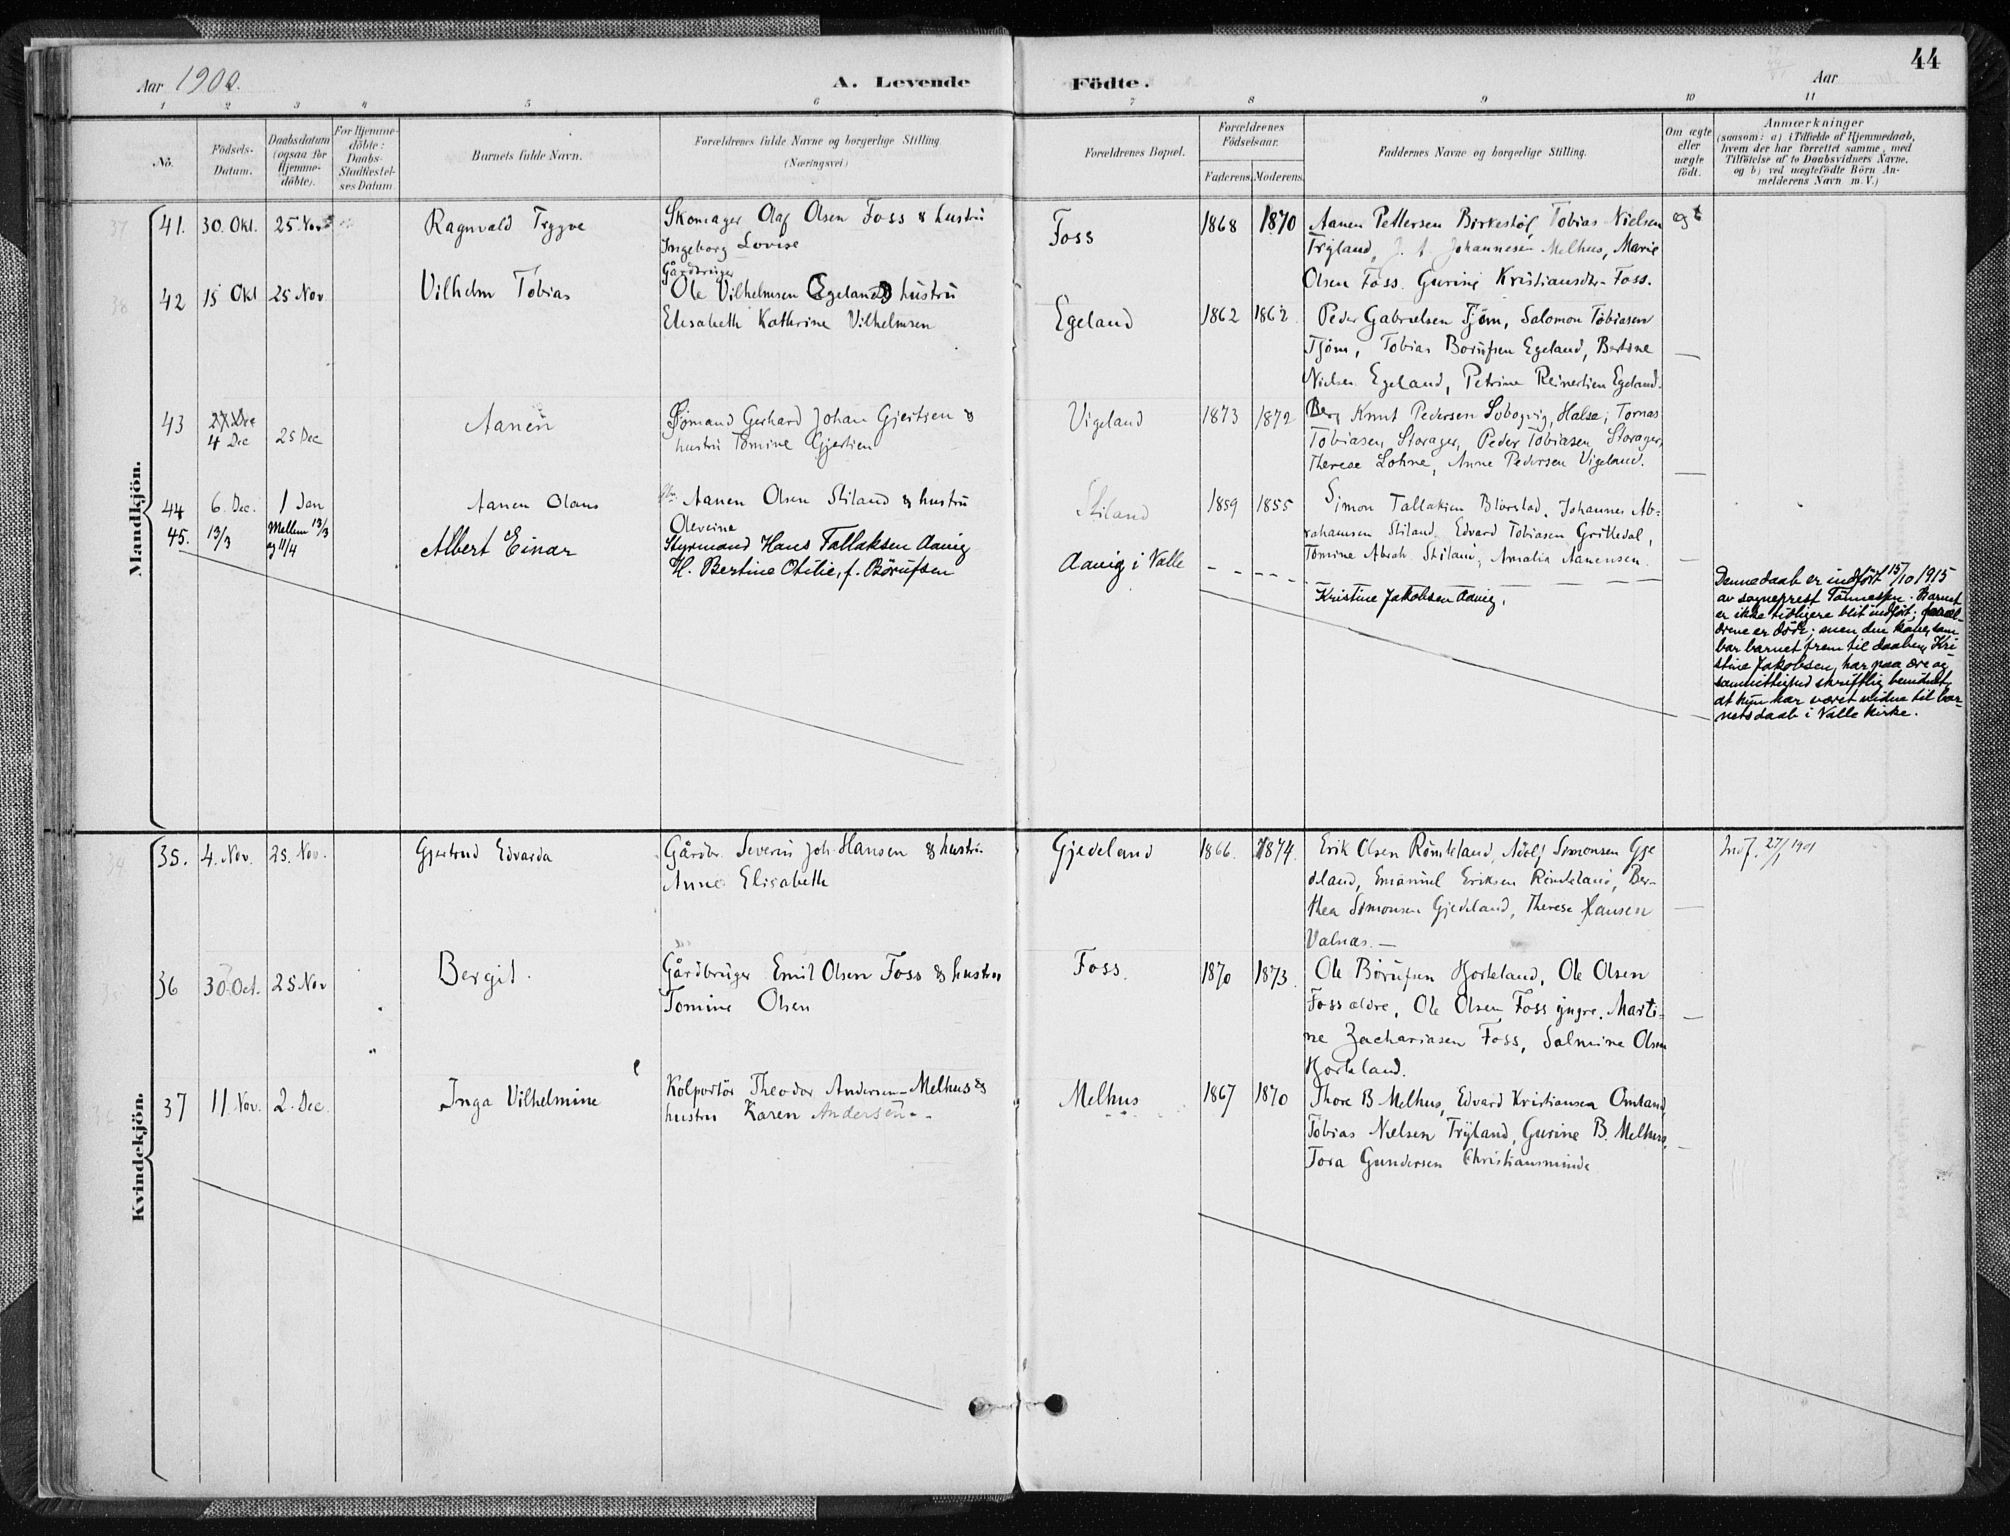 44
Aar 1900.
A. Levende Födte.
Aar
1 2 3 4 5 6 7 8 9 10 11
No.
Födsels-
Datum.
Daabsdatum
(ogsaa for
Hjemme-
döbte).
For Hjemme-
döbte:
Daabs-
Stadfæstel-
ses Datum
Barnets fulde Navn.
Forældrenes fulde Navne og borgerlige Stilling
(Næringsvei)
Forældrenes Bopæl.
Forældrenes
Födselsaar.
Faderens. Moderens.
Faddernes Navne og borgerlige Stilling.
Om ægte
eller
uægte
födt.
Anmærkninger
(saasom: a) i Tilfælde af Hjemmedaab,
hvem der har forrettet samme, med
Tilföielse af to Daabsvidners Navne.
og b) ved uægtefödte Börn An-
melderens Navn m. V.)
Mandkjön.
37 41. 30. Okt. 25 Nov
Ragnvald Tryggve
Skomager Olaf Olsen Foss & hustru
Ingeborg Lovise
Foss
1868 1870
Aanen Pettersen Birkestøl, Tobias Nielsen
Trÿland, J. A. Johannesen Melhus, Marie
Olsen Foss. Gurine Kristiansdtr. Foss.
ægt
38 42 15 Okt 25 Nov
Vilhelm Tobias
Gårdbruger
Ole Vilhelmsen Egeland & hustru
Elisabeth Kathrine Vilhelmsen
Egeland
1862 1862.
Peder Gabrielsen Tjøm, Salomon Tobiasen
Tjøm, Tobias Børufsen Egeland, Bertine
Nielsen Egeland, Petrine Reinertsen Egeland.
—
43 4 Dec 25 Dec
Aanen
Sømand Gerhard Johan Gjertsen &
hustru Tomine Gjertsen
Vigeland
1873 1872
Knut Pedersen Halse, Tomas
Tobiasen, Storager, Peder Tobiasen Storager,
Therese Lohne, Anne Pedersen Vigeland.
—
44 6. Dec. 1 Jan
Aanen Olaus
Aanen Olsen Stiland & hustru
Olevine
Stiland
1859 1855
Simon Tallaksen Johannes Ab-
rahamsen Stiland. Edvard Tobiasen
Tomine Abrah. Stiland, Amalia Aanensen.
—
45. 13/3 Mellem 13/3
og 11/4
Albert Einar
Styrmand Hans Tallaksen Aavig
H. Bertine Otilie, f. Børufsen
Aavig i Valle
Kristine Jakobsen Aavig.
Denne daab er indført 15/10 1915
av sogneprest Tønnessen. Barnet
er ikke tidligere blit indført; foræl-
drene er døde; men den kone, som
bar barnet frem til daaben, Kri-
stine Jakobsen, har paa ære og
samvittighed skriftlig bevidnet,
at hun har været vidne til bar-
nets daab i Valle kirke.
Kvindekjön.
34 35. 4. Nov. 25. Nov.
Gjertrud Edvarda
Gårdbr. Severin Joh. Hansen & hustru
Anne Elisabeth
Gjedeland
1866. 1874.
Erik Olsen Rømteland, Adolf Simonsen Gje
deland, Emanuel Eriksen Rømteland, Ber-
thea Simonsen Gjedeland, Therese Hansen
Valnæs. —
—
Indf. 27/1 1901
35 36 30. Oct. 25 Nov
Bergit.
Gårdbruger Emil Olsen Foss & hustru
Tomine Olsen
Foss.
1870 1873.
Ole Børufsen Hjorteland, Ole Olsen
Foss ældre, Ole Olsen Foss yngre. Marti-
ne Zachariasen Foss, Salmine Olsen
Hjorteland.
—
36 37 11 Nov. 2. Dec.
Inga Vilhelmine
Kolportør Theodor Andersen-Melhus &
hustru Karen Andersen
Melhus
1867 1870
Thore B Melhus, Edvard Kristiansen Omland,
Tobias Nielsen Trÿland, Gurine B. Melhus,
Tora Gundersen Christiansminde
—